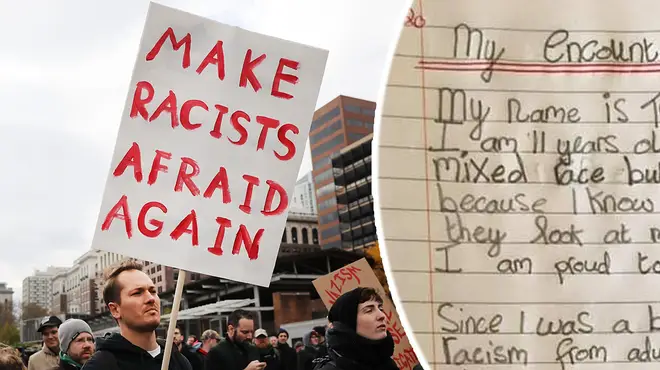 MAKE
RACISTS
AFRAID
AGAIN
20
My encount
My name is T
I am 11 years ol
mixed race bu
because I know
they look at m
I am proud to
Since I was a b
racism from adu